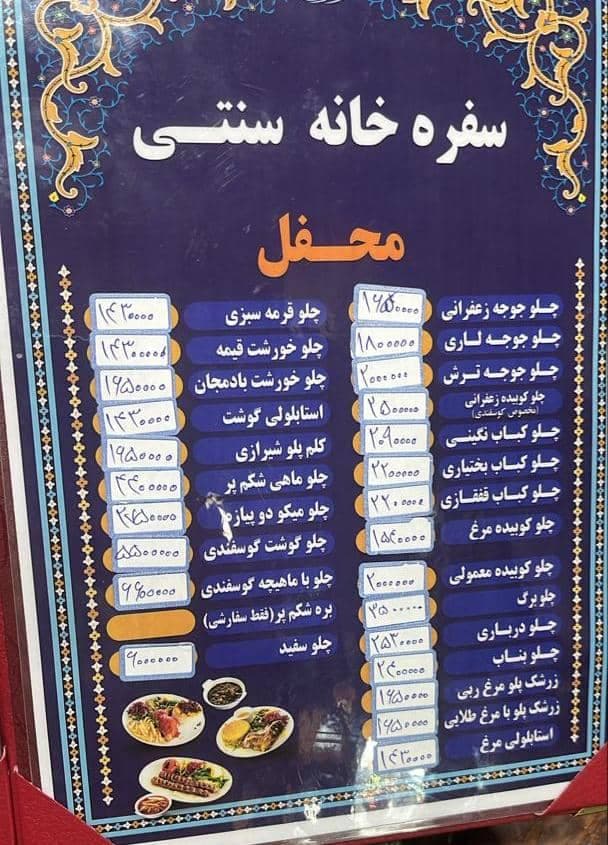 سفره خانه سنتی
محفل
چلو جوجه زعفرانی
چلو جوجه لاری ۱۸۰۰۰۰۰
چلو جوجه ترش ۲۰۰۰۰۰۰
چلو کوبیده زعفرانی ۲۵۰۰۰۰۰
(مخصوص گوسفندی)
چلو کباب نگینی ۲۰۹۰۰۰۰
چلو کباب بختیاری ۲۲۰۰۰۰۰
چلو کباب قفقازی ۲۲۰۰۰۰۰
چلو کوبیده مرغ ۱۵۴۰۰۰۰
چلو کوبیده معمولی ۲۰۰۰۰۰۰
چلو برگ ۳۵۰۰۰۰۰
چلو درباری ۲۵۳۰۰۰۰
چلو بناب ۲۴۰۰۰۰۰
زرشک پلو مرغ ربی ۱۶۵۰۰۰۰
زرشک پلو با مرغ طلایی ۱۶۵۰۰۰۰
استابلولی مرغ ۱۴۳۰۰۰۰
چلو قرمه سبزی ۱۴۳۰۰۰۰
چلو خورشت قیمه ۱۴۳۰۰۰۰
چلو خورشت بادمجان ۱۶۵۰۰۰۰
استابلولی گوشت ۱۴۳۰۰۰۰
کلم پلو شیرازی ۱۶۵۰۰۰۰
چلو ماهی شگم پر ۴۴۰۰۰۰۰
چلو میکو دو پیازه ۲۷۵۰۰۰۰
چلو گوشت گوسفندی ۵۵۰۰۰۰۰
چلو با ماهیچه گوسفندی ۶۶۰۰۰۰۰
بره شگم پر (فقط سفارشی)
چلو سفید